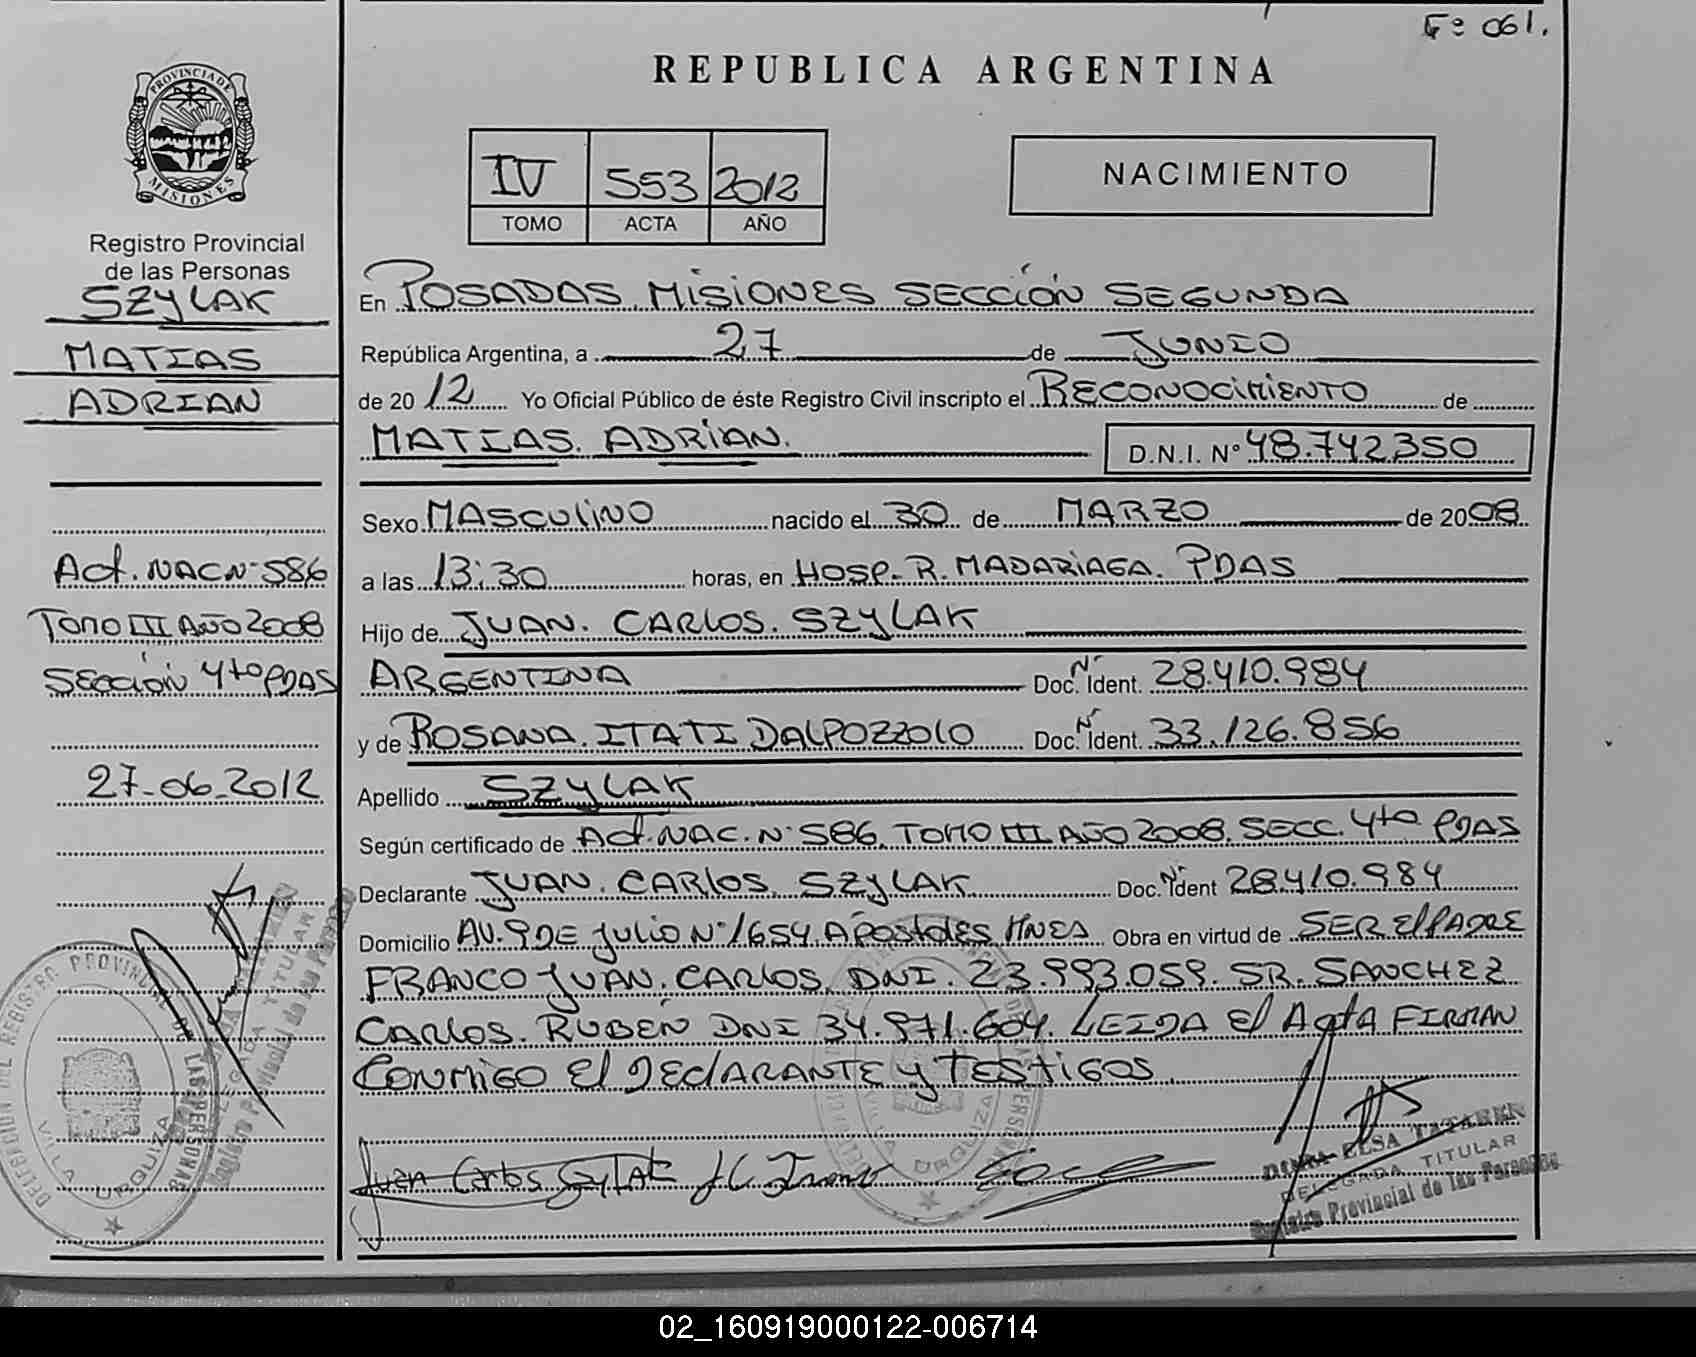 Fº 061.
REPUBLICA ARGENTINA
PROVINCIA DE
MISIONES
Registro Provincial
de las Personas
SZYLAK
MATIAS
ADRIAN
Act. NAC Nº 586
Tomo III Año 2008
SECCIÓN 4to PDAS
27-06-2012
IV 553 2012
TOMO ACTA AÑO
NACIMIENTO
En POSADAS. MISIONES SECCIÓN SEGUNDA
República Argentina, a 27 de JUNIO
de 2012 Yo Oficial Público de éste Registro Civil inscripto el RECONOCIMIENTO de
MATIAS. ADRIAN. D.N.I. Nº 48.742.350
Sexo MASCULINO nacido el 30 de MARZO de 2008
a las 13:30 horas, en HOSP. R. MADARIAGA. PDAS
Hijo de JUAN. CARLOS. SZYLAK
ARGENTINA Doc. Nº Ident. 28.410.984
y de ROSANA. ITATI DALPOZZOLO Doc. Nº Ident. 33.126.856
Apellido SZYLAK
Según certificado de Act. NAC. Nº 586. TOMO III AÑO 2008. SECC. 4to PDAS
Declarante JUAN. CARLOS. SZYLAK Doc. Nº Ident 28.410.984
Domicilio AV. 9 DE JULIO Nº 1654. APOSTOLES MNES Obra en virtud de SER El PADRE
FRANCO JUAN. CARLOS. DNI. 23.993.059. SR. SANCHEZ
CARLOS. RUBEN DNI 34.971.604. LEIDA El Acta FIRMAN
CONMIGO El DEClARANTE y TESTIGOS
Juan Carlos Szylak
ELSA TATAREN
DELEGADA TITULAR
Registro Provincial de las Personas
DELEGACION DEL REGISTRO PROVINCIAL DE LAS PERSONAS
VILLA URQUIZA
02_160919000122-006714